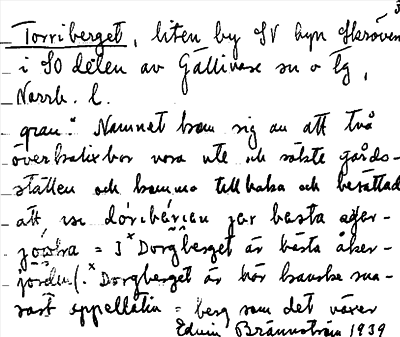 3
Torriberget, liten by SV byn Skröven
i SO delen av Gällivare sn o tg,
Norrb. l.
gran: Namnet kom sig av att två
överkalixbor vora ute och sökte gårds-
ställen och kommo tillbaka och berättade
att
= I *Dorgberget är bästa åker-
jorden/. *Dorgberget är här kanske sna-
rast appellativ = berg som det växer
Edvin Brännström 1939